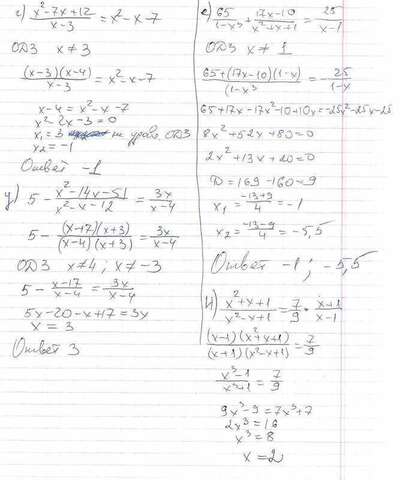 г) (x²-7x+12)/(x-3) = x²-x-7
ОДЗ x≠3
((x-3)(x-4))/(x-3) = x²-x-7
x-4 = x²-x-7
x²-2x-3=0
x₁=3 не удовл. ОДЗ
x₂=-1
Ответ -1
у) 5 - (x²-14x-51)/(x²-x-12) = 3x/(x-4)
5 - ((x+17)(x+3))/((x-4)(x+3)) = 3x/(x-4)
ОДЗ x≠4; x≠-3
5 - (x-17)/(x-4) = 3x/(x-4)
5x-20-x+17=3x
x=3
Ответ 3
е) 65/(1-x³) + (17x-10)/(x²+x+1) = 25/(x-1)
ОДЗ x≠1
(65+(17x-10)(1-x))/(1-x³) = -25/(1-x)
65+17x-17x²-10+10x=-25x²-25x-25
8x²+52x+80=0
2x²+13x+20=0
D=169-160=9
x₁=(-13+9)/4=-1
x₂=(-13-9)/4=-5,5
Ответ -1; -5,5
и) (x²+x+1)/(x²-x+1) = 7/9 · (x+1)/(x-1)
((x-1)(x²+x+1))/((x+1)(x²-x+1)) = 7/9
(x³-1)/(x³+1) = 7/9
9x³-9=7x³+7
2x³=16
x³=8
x=2